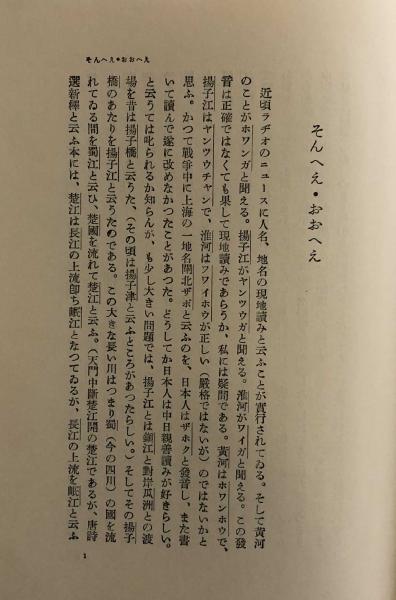 そんへえ・おおへえ
そんへえ・おおへえ
近頃ラヂオのニュースに人名、地名の現地讀みと云ふことが實行されてゐる。そして黄河
のことがホワンガと聞える。揚子江がヤンツウガと聞える。淮河がワイガと聞える。この發
音は正確ではなくても果して現地讀みであらうか、私には疑問である。黄河はホワンホウで、
揚子江はヤンツウチャンで、淮河はフワイホウが正しい（嚴格ではないが）のではないかと
思ふ。かつて戰爭中に上海の一地名閘北ザポと云ふのを、日本人はザホクと發音し、また書
いて讀んで遂に改めなかつたことがあつた。どうしてか日本人は中日親善讀みが好きらしい。
と云うては叱られるか知らんが、も少し大きい問題では、揚子江とは鎭江と對岸瓜洲との渡
場を昔は揚子橋と云うた、（その頃は揚子津と云ふところがあつたらしい。）そしてその揚子
橋のあたりを揚子江と云うたのである。この大きな長い川はつまり蜀（今の四川）の國を流
れてゐる間を蜀江と云ひ、楚國を流れて楚江と云ふ。（天門中斷楚江開の楚江であるが、唐詩
選新釋と云ふ本には、楚江は長江の上流卽ち岷江となつてゐるが、長江の上流を岷江と云ふ
1